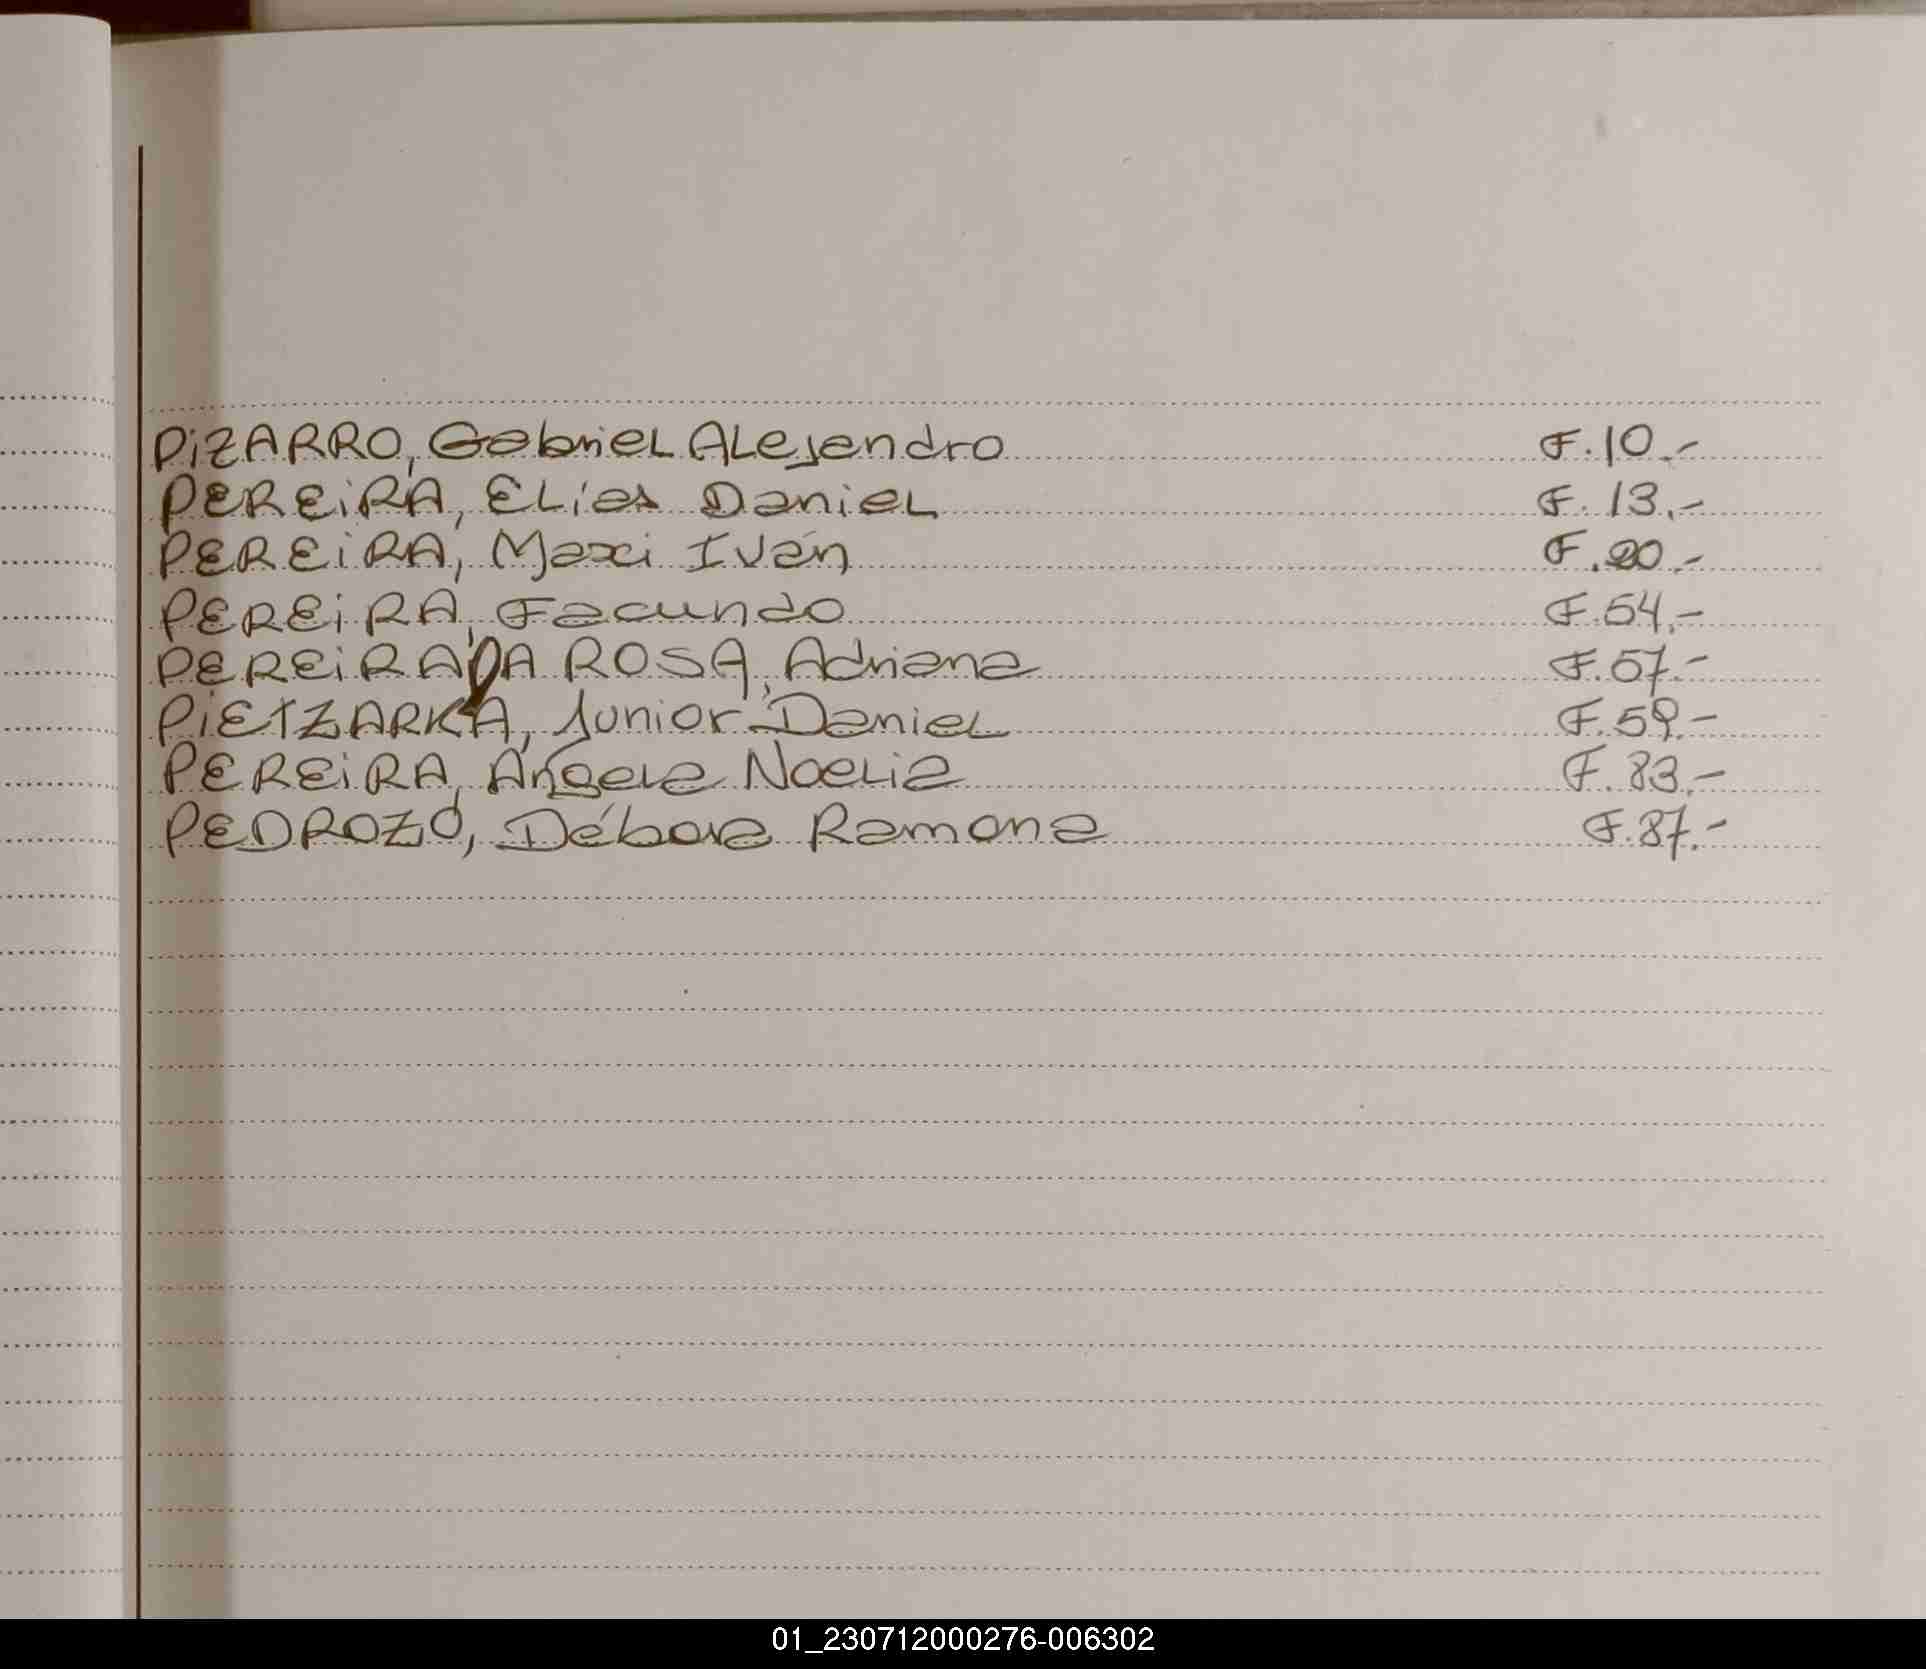 PIZARRO, Gabriel Alejandro F. 10.-
PEREIRA, Elías Daniel F. 13.-
PEREIRA, Maxi Iván F. 20.-
PEREIRA, Facundo F. 54.-
PEREIRA DA ROSA, Adriana F. 57.-
PIETZARKA, Junior Daniel F. 59.-
PEREIRA, Angela Noelia F. 83.-
PEDROZO, Débora Ramona F. 87.-
01_230712000276-006302